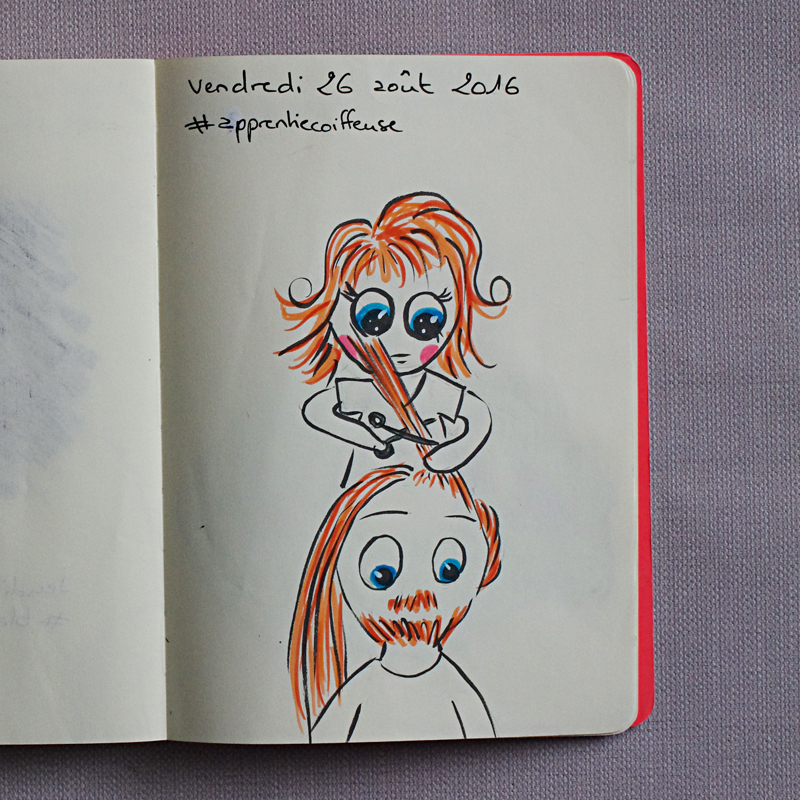 vendredi 26 août 2016
#apprentiecoiffeuse